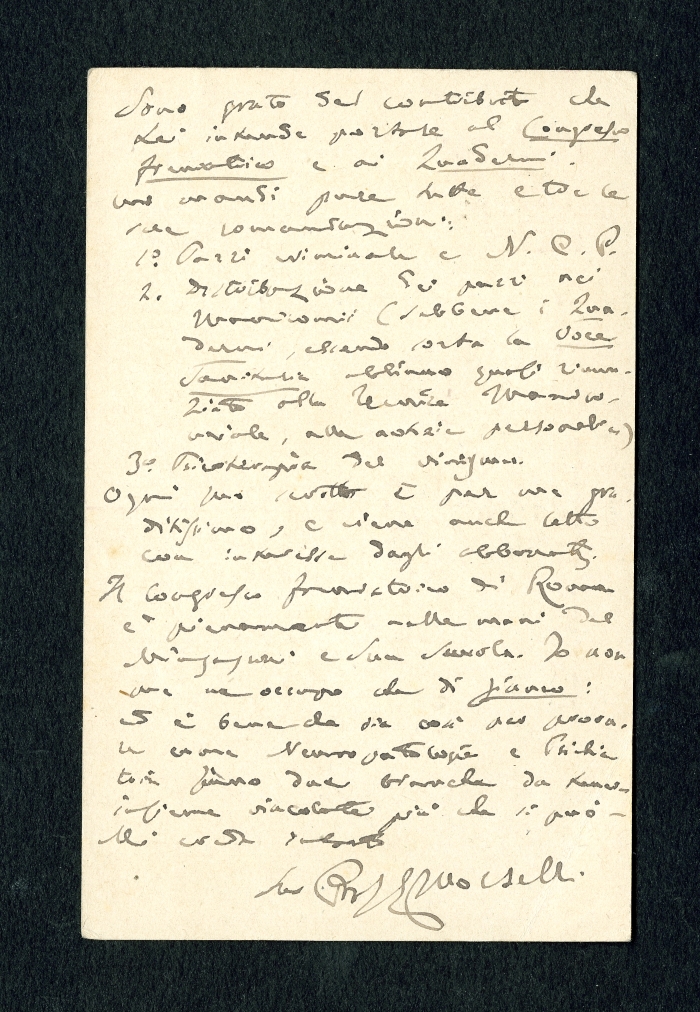 Sono grato del contributo che
Lei intende portare al Congresso
freniatrico e ai Quaderni.
mi mandi pure tutte e tre le
sue comunicazioni:
1º. Pazzi criminali e N. C. P.
2. Distribuzione dei pazzi nei
Manicomii (sebbene i Qua-
derni, essendo sorta la Voce
Sanitaria abbiamo quasi rinun-
ziato alla tecnica Manico-
miale, alle notizie personali)
3º Psicoterapia del
Ogni suo scritto è per me gra-
ditissimo, e viene anche letto
con interesse dagli abbonati.
Il congresso freniatrico di Roma
è pienamente nelle mani del
Mingazzini e Sua Scuola. Io non
me ne occupo che di fianco:
ed è bene che sia così per prova-
re come Neuropatologia e Psichia-
tria siano due branche da tenersi
insieme vincolate più che si può -
Mi creda
Suo Prof E Morselli.